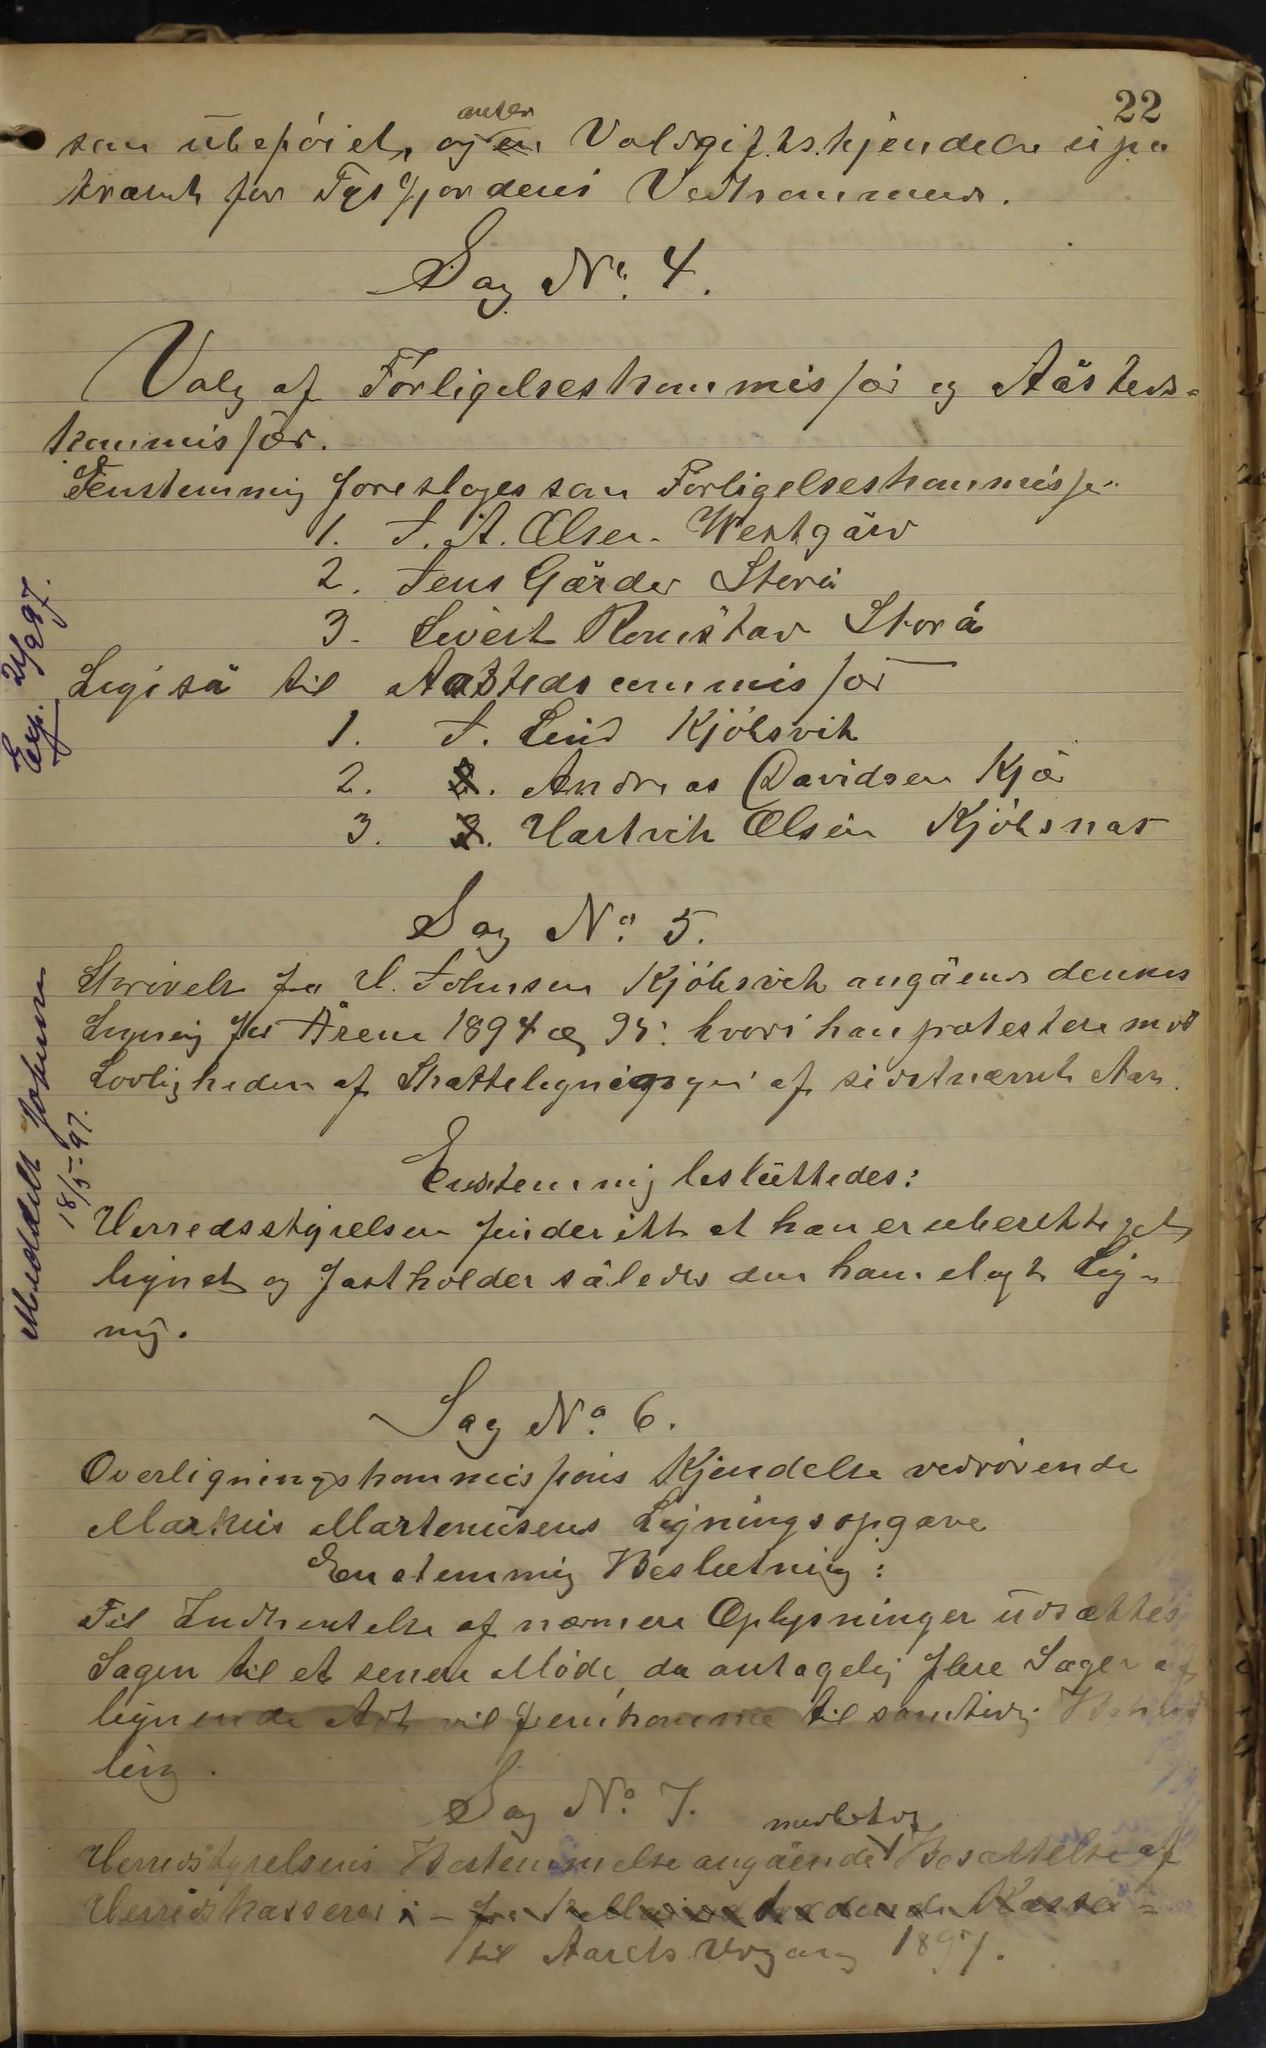 22
som ubeføiet, og anser Voldgiftskjendelse upa
kravet for Tysfjordens Vedkommende.
Sag No. 4.
Valg af Forligelseskommissær og Aåsteds-
kommissær.
Enstemmig foresloges som Forligelseskommissær
1. J. A. Olsen. Westgård
2. Jens Gårder Storå
3. Sivert Storå
Ligeså til Aastedscommissær
1. J. Lind Kjöbsvik
2. 2. Andreas Davidsen Kjær
3. 3. Hartvik Olsen Kjöbsnæs
Exp. 21/2 97.
Sag No. 5.
Skrivelse fra H. Johnsen Kjöbsvik angående dennes
Ligning for Årene 1894 og 95: hvori han protestere mod
Lovligheden af Skatteligningen af sidstnævnte Aar.
Enstemmig besluttedes:
Herredsstyrelsen finder ikke at han er uberettiget
lignet og fastholder således den ham elagte Lig-
ning.
Meddelt Johnsen
18/5-97.
Sag No. 6.
Overligningskommissions Kjendelse vedrörende
Markus Martenusens Ligningsopgave
Enstemmig Beslutning:
Til Indhentelse af nærmere Oplysninger udsættes
Sagen til et senere Möde, da antagelig flere Sager af
lignende Art vil fremkomme til samtidig Behand
ling.
Sag No. 7.
Herredsstyrelsens Bestemmelse angående Besættelse af
Herredskasserer i -
til Aarets Udgang 1897.